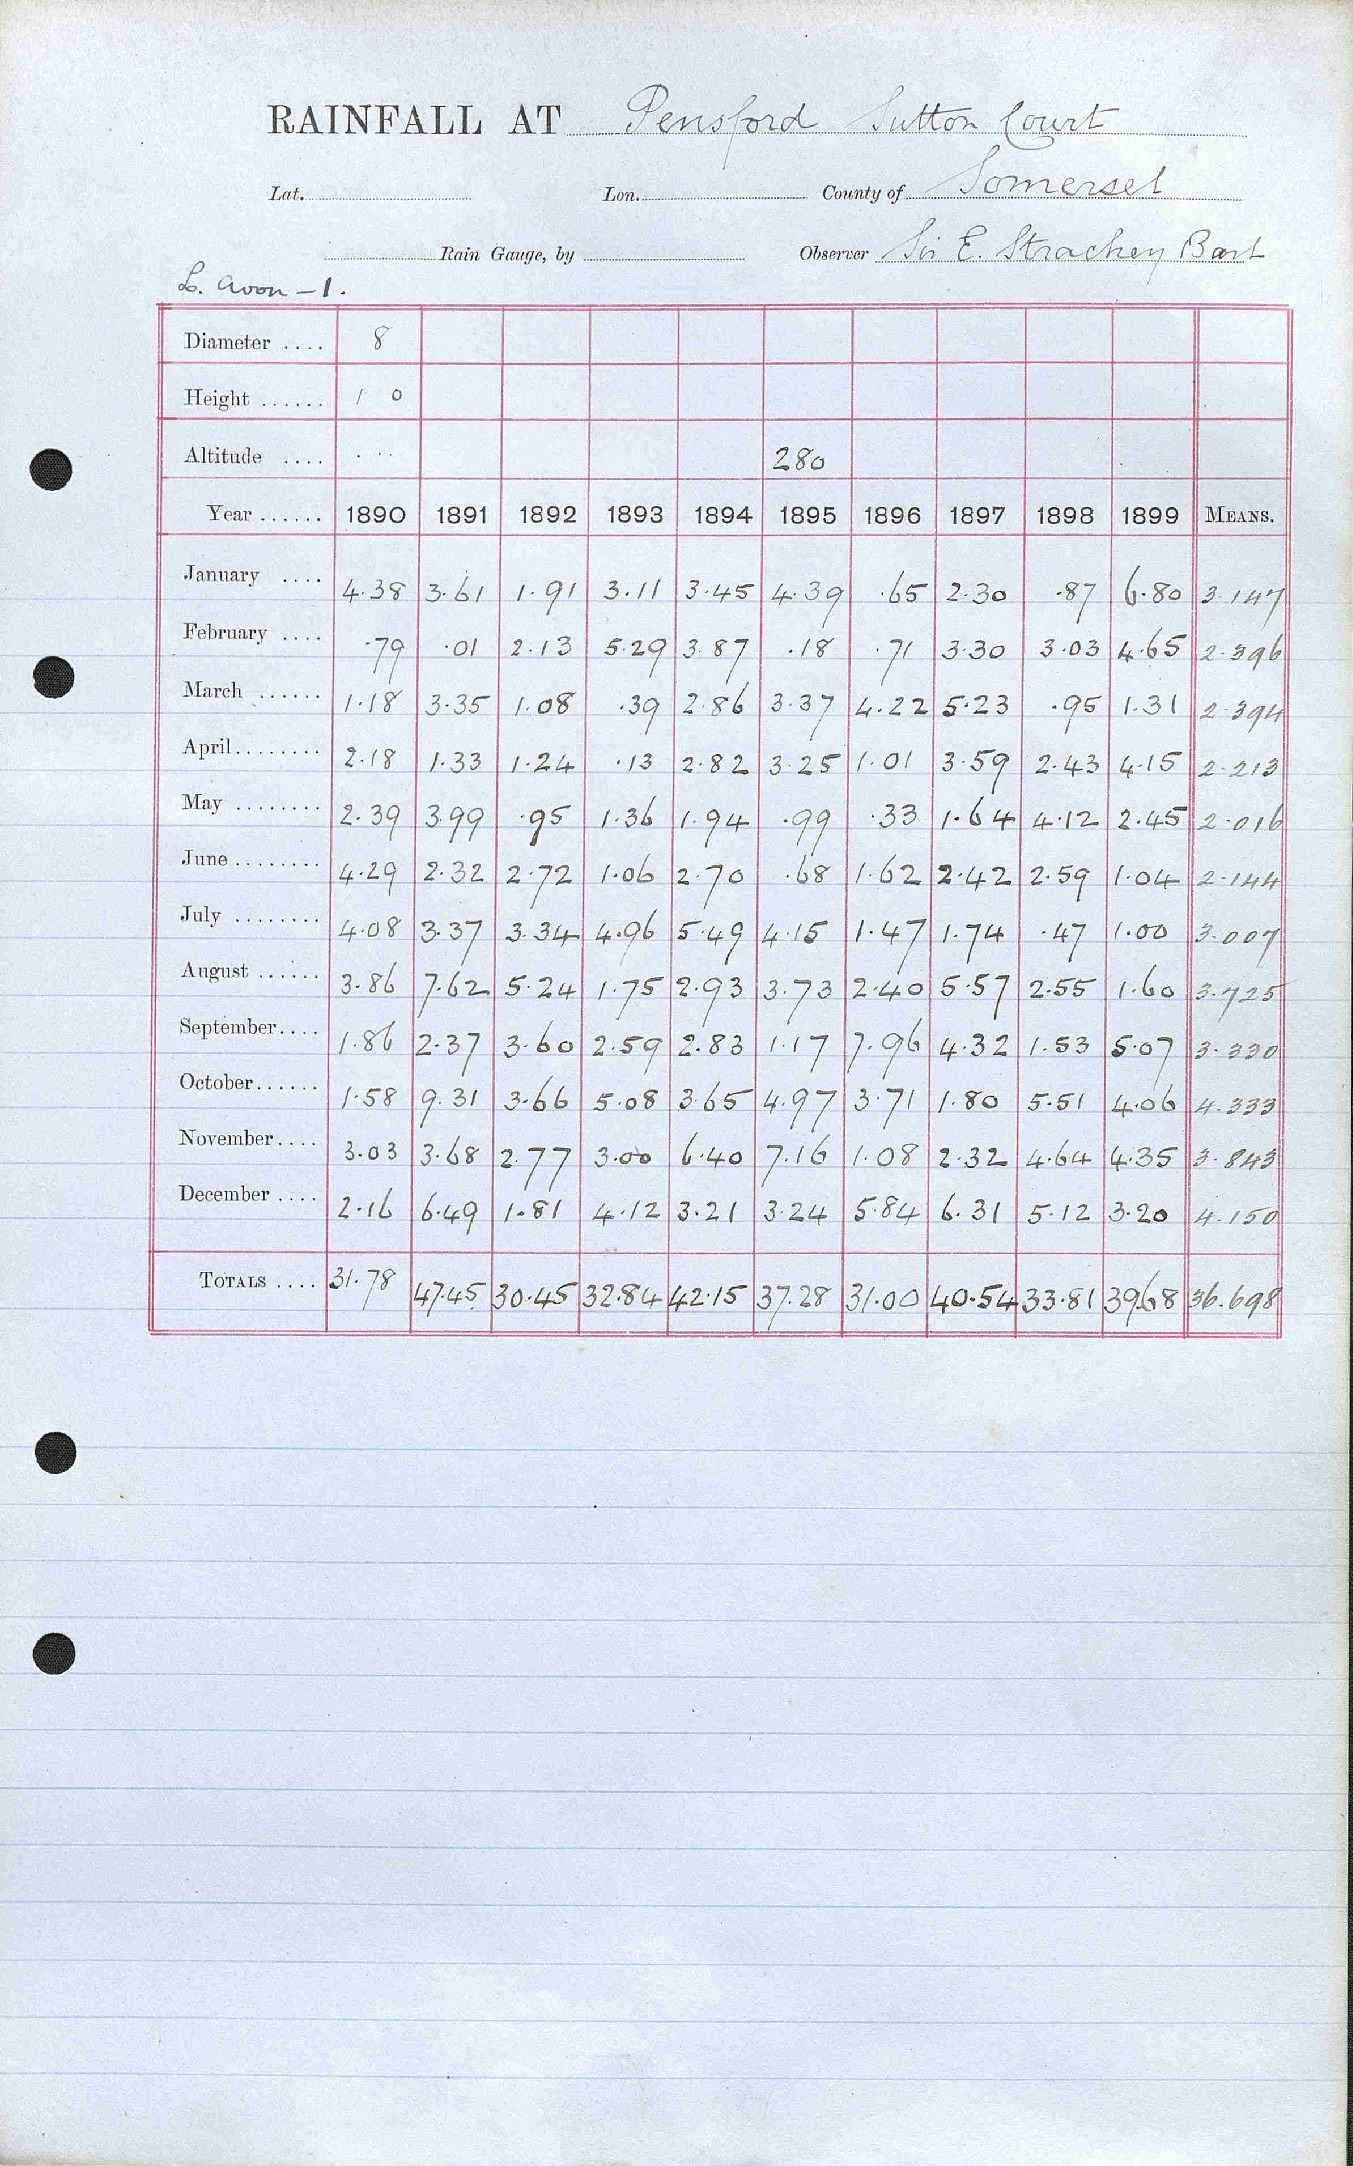 RAINFALL AT Pensford Sutton Court
Lat. Lon. County of Somerset
Rain Gauge, by Observer Sir E. Strachey Bart
L. Avon - 1.
Diameter .... 8
Height ...... 1 0
Altitude .... 280
Year ...... 1890 1891 1892 1893 1894 1895 1896 1897 1898 1899 MEANS.
January .... 4.38 3.61 1.91 3.11 3.45 4.39 .65 2.30 .87 6.80 3.147
February .... .79 .01 2.13 5.29 3.87 .18 .71 3.30 3.03 4.65 2.396
March ...... 1.18 3.35 1.08 .39 2.86 3.37 4.22 5.23 .95 1.31 2.394
April........ 2.18 1.33 1.24 .13 2.82 3.25 1.01 3.59 2.43 4.15 2.213
May ........ 2.39 3.99 .95 1.36 1.94 .99 .33 1.64 4.12 2.45 2.016
June........ 4.29 2.32 2.72 1.06 2.70 .68 1.62 2.42 2.59 1.04 2.144
July ........ 4.08 3.37 3.34 4.96 5.49 4.15 1.47 1.74 .47 1.00 3.007
August ...... 3.86 7.62 5.24 1.75 2.93 3.73 2.40 5.57 2.55 1.60 3.725
September.... 1.86 2.37 3.60 2.59 2.83 1.17 7.96 4.32 1.53 5.07 3.330
October...... 1.58 9.31 3.66 5.08 3.65 4.97 3.71 1.80 5.51 4.06 4.333
November.... 3.03 3.68 2.77 3.00 6.40 7.16 1.08 2.32 4.64 4.35 3.843
December .... 2.16 6.49 1.81 4.12 3.21 3.24 5.84 6.31 5.12 3.20 4.150
TOTALS .... 31.78 47.45 30.45 32.84 42.15 37.28 31.00 40.54 33.81 39.68 36.698